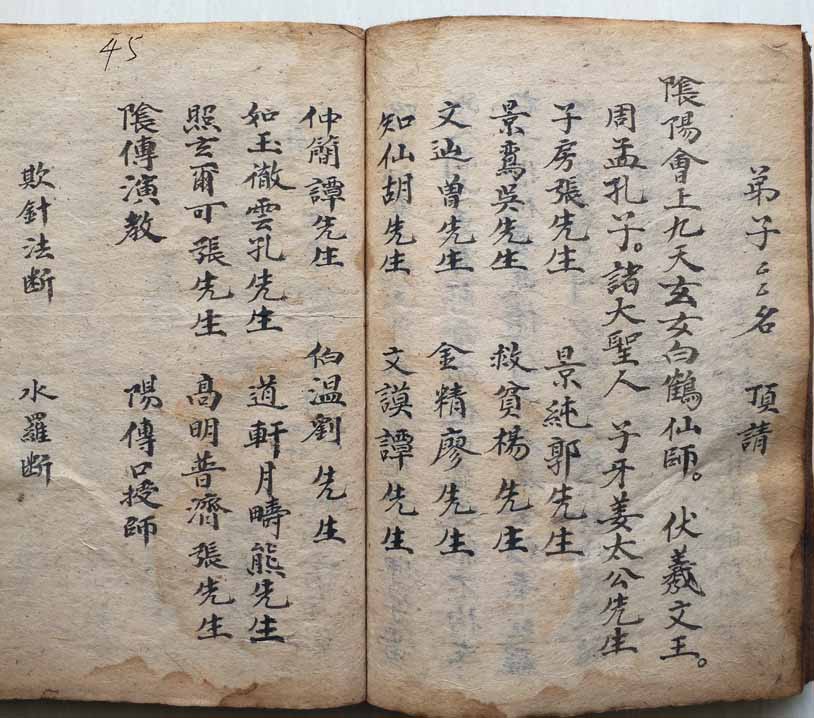 弟子〻〻名　頂請
陰陽會上九天玄女白鶴仙師。伏羲文王。
周孟孔子。諸大聖人　子牙姜太公先生
子房張先生　景純郭先生
景鸞吳先生　救貧楊先生
文辿曾先生　金精廖先生
知仙胡先生　文謨譚先生
仲簡譚先生　伯溫劉先生
如玉徹雲孔先生　道軒月疇熊先生
照玄爾可張先生　高明普濟張先生
陰傳演教　陽傳口授師
欺針法断　水羅断
45